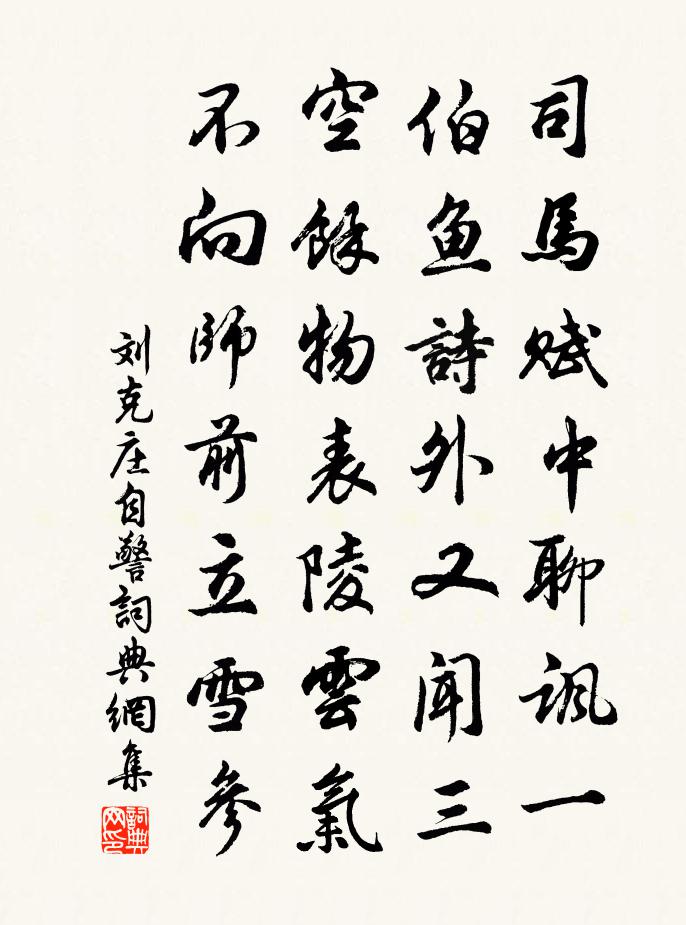 司馬賦中聊諷一
伯魚詩外又聞三
空餘物表陵雲氣
不向師前立雪參
刘克庄自警詞典網集
詞典网印